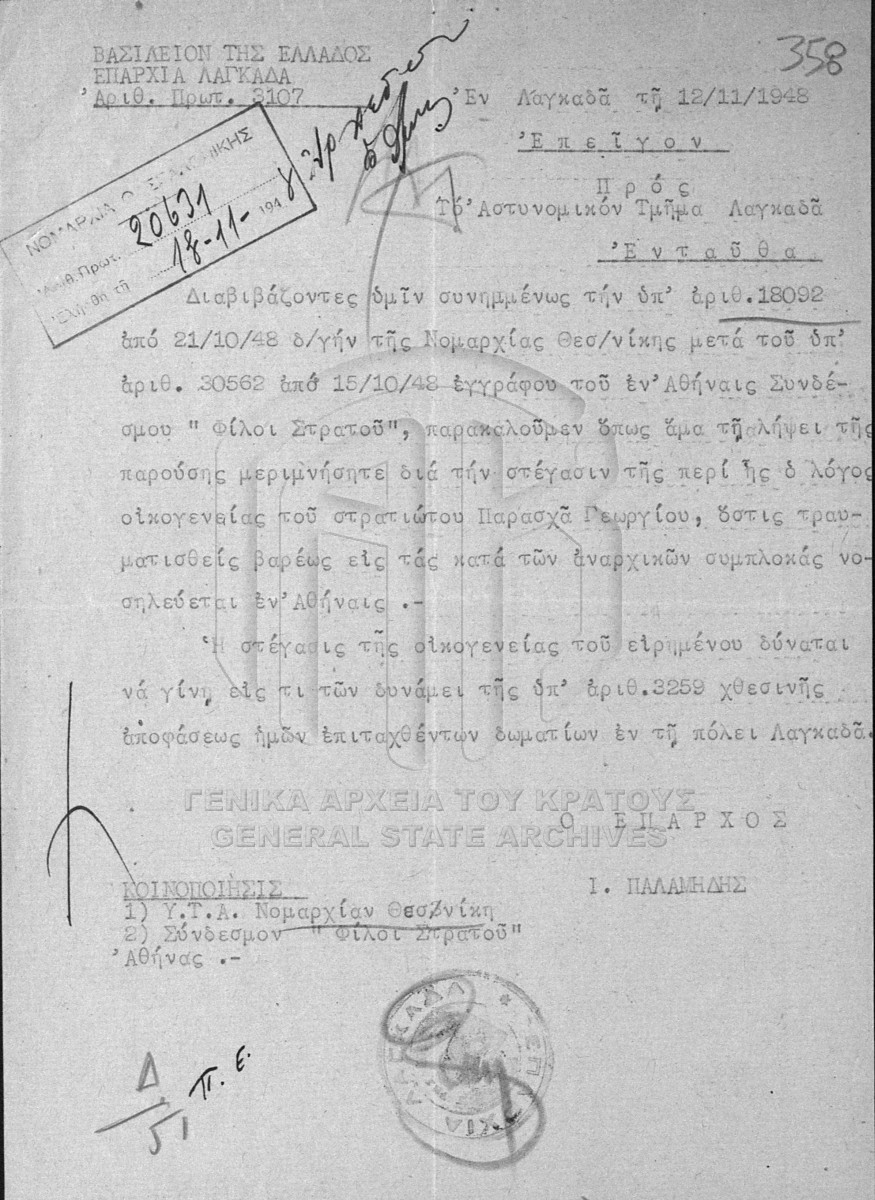 358
ΒΑΣΙΛΕΙΟΝ ΤΗΣ ΕΛΛΑΔΟΣ
ΕΠΑΡΧΙΑ ΛΑΓΚΑΔΑ
Ἀριθ. Πρωτ. 3107
Ἐν Λαγκαδᾶ τῇ 12/11/1948
Ἐπεῖγον
Πρός
Τό Ἀστυνομικόν Τμῆμα Λαγκαδᾶ
Ἐνταῦθα
ΝΟΜΑΡΧΙΑ ΘΕΣΣΑΛΟΝΙΚΗΣ
Ἀριθ. Πρωτ. 20631
Ἐλήφθη τῇ 18-11-1948
Διαβιβάζοντες ὑμῖν συνημμένως τήν ὑπ' ἀριθ.18092
ἀπό 21/10/48 δ/γήν τῆς Νομαρχίας Θεσ/νίκης μετά τοῦ ὑπ'
ἀριθ. 30562 ἀπό 15/10/48 ἐγγράφου τοῦ ἐν Ἀθήναις Συνδέ-
σμου " Φίλοι Στρατοῦ", παρακαλοῦμεν ὅπως ἅμα τῇ λήψει τῆς
παρούσης μεριμνήσητε διά τήν στέγασιν τῆς περί ἧς ὁ λόγος
οἰκογενείας τοῦ στρατιώτου Παρασχᾶ Γεωργίου, ὅστις τραυ-
ματισθείς βαρέως εἰς τάς κατά τῶν ἀναρχικῶν συμπλοκάς νο-
σηλεύεται ἐν Ἀθήναις .-
Ἡ στέγασις τῆς οἰκογενείας τοῦ εἰρημένου δύναται
νά γίνῃ εἰς τι τῶν δυνάμει τῆς ὑπ' ἀριθ.3259 χθεσινῆς
ἀποφάσεως ἡμῶν ἐπιταχθέντων δωματίων ἐν τῇ πόλει Λαγκαδᾶ.
ΓΕΝΙΚΑ ΑΡΧΕΙΑ ΤΟΥ ΚΡΑΤΟΥΣ
GENERAL STATE ARCHIVES
Ο ΕΠΑΡΧΟΣ
Ι. ΠΑΛΑΜΗΔΗΣ
ΚΟΙΝΟΠΟΙΗΣΙΣ
1) Υ.Τ.Α. Νομαρχίαν Θεσ/νίκη
2) Σύνδεσμον " Φίλοι Στρατοῦ"
Ἀθήνας .-
ΕΠΑΡΧΙΑ ΛΑΓΚΑΔΑ
Δ
51
Π. Ε.